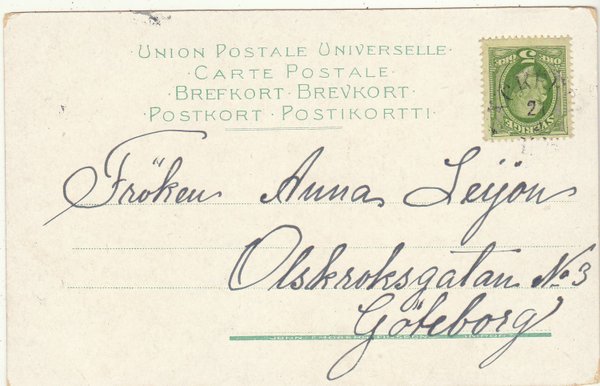 ·UNION POSTALE UNIVERSELLE·
·CARTE POSTALE·
·BREFKORT·BREVKORT·
·POSTKORT·POSTIKORTTI·
5
ÖRE
ÖRE
SVERIGE
2
Fröken Anna Leijon
Olskroksgatan No 3
Göteborg